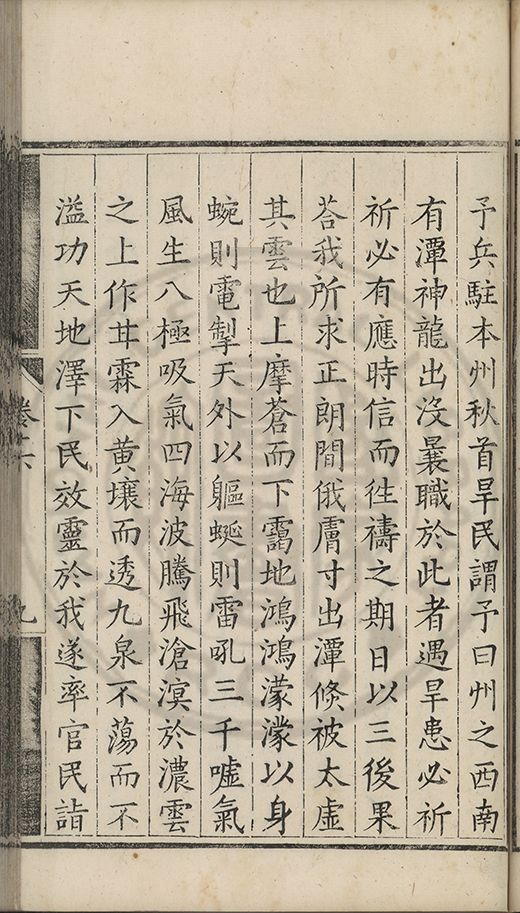 予兵駐本州秋首旱民謂予曰州之西南
有潭神龍出没曩職於此者遇旱患必祈
祈必有應時信而徃禱之期日以三後果
荅我所求正朗間俄膚寸出潭倐被太虚
其雲也上摩蒼而下靄地鴻鴻濛濛以身
蜿則電掣天外以軀蜒則雷吼三千噓氣
風生八極吸氣四海波騰飛滄溟於濃雲
之上作甘霖入黄壤而透九泉不蕩而不
溢功天地澤下民效靈於我遂率官民詣
卷十六
九